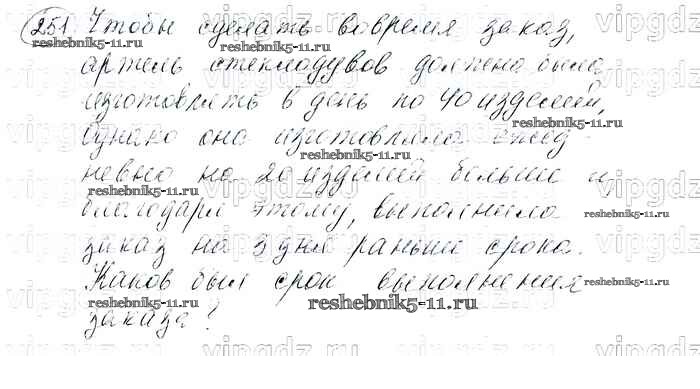 251 Чтобы сделать вовремя заказ,
артель стеклодувов должна была
изготовлять в день по 40 изделий,
однако она изготовляла ежед-
невно на 20 изделий больше и,
благодаря этому, выполнила
заказ на 3 дня раньше срока.
Каков был срок выполнения
заказа?
reshebnik5-11.ru
reshebnik5-11.ru
reshebnik5-11.ru
reshebnik5-11.ru
reshebnik5-11.ru
reshebnik5-11.ru
reshebnik5-11.ru
reshebnik5-11.ru